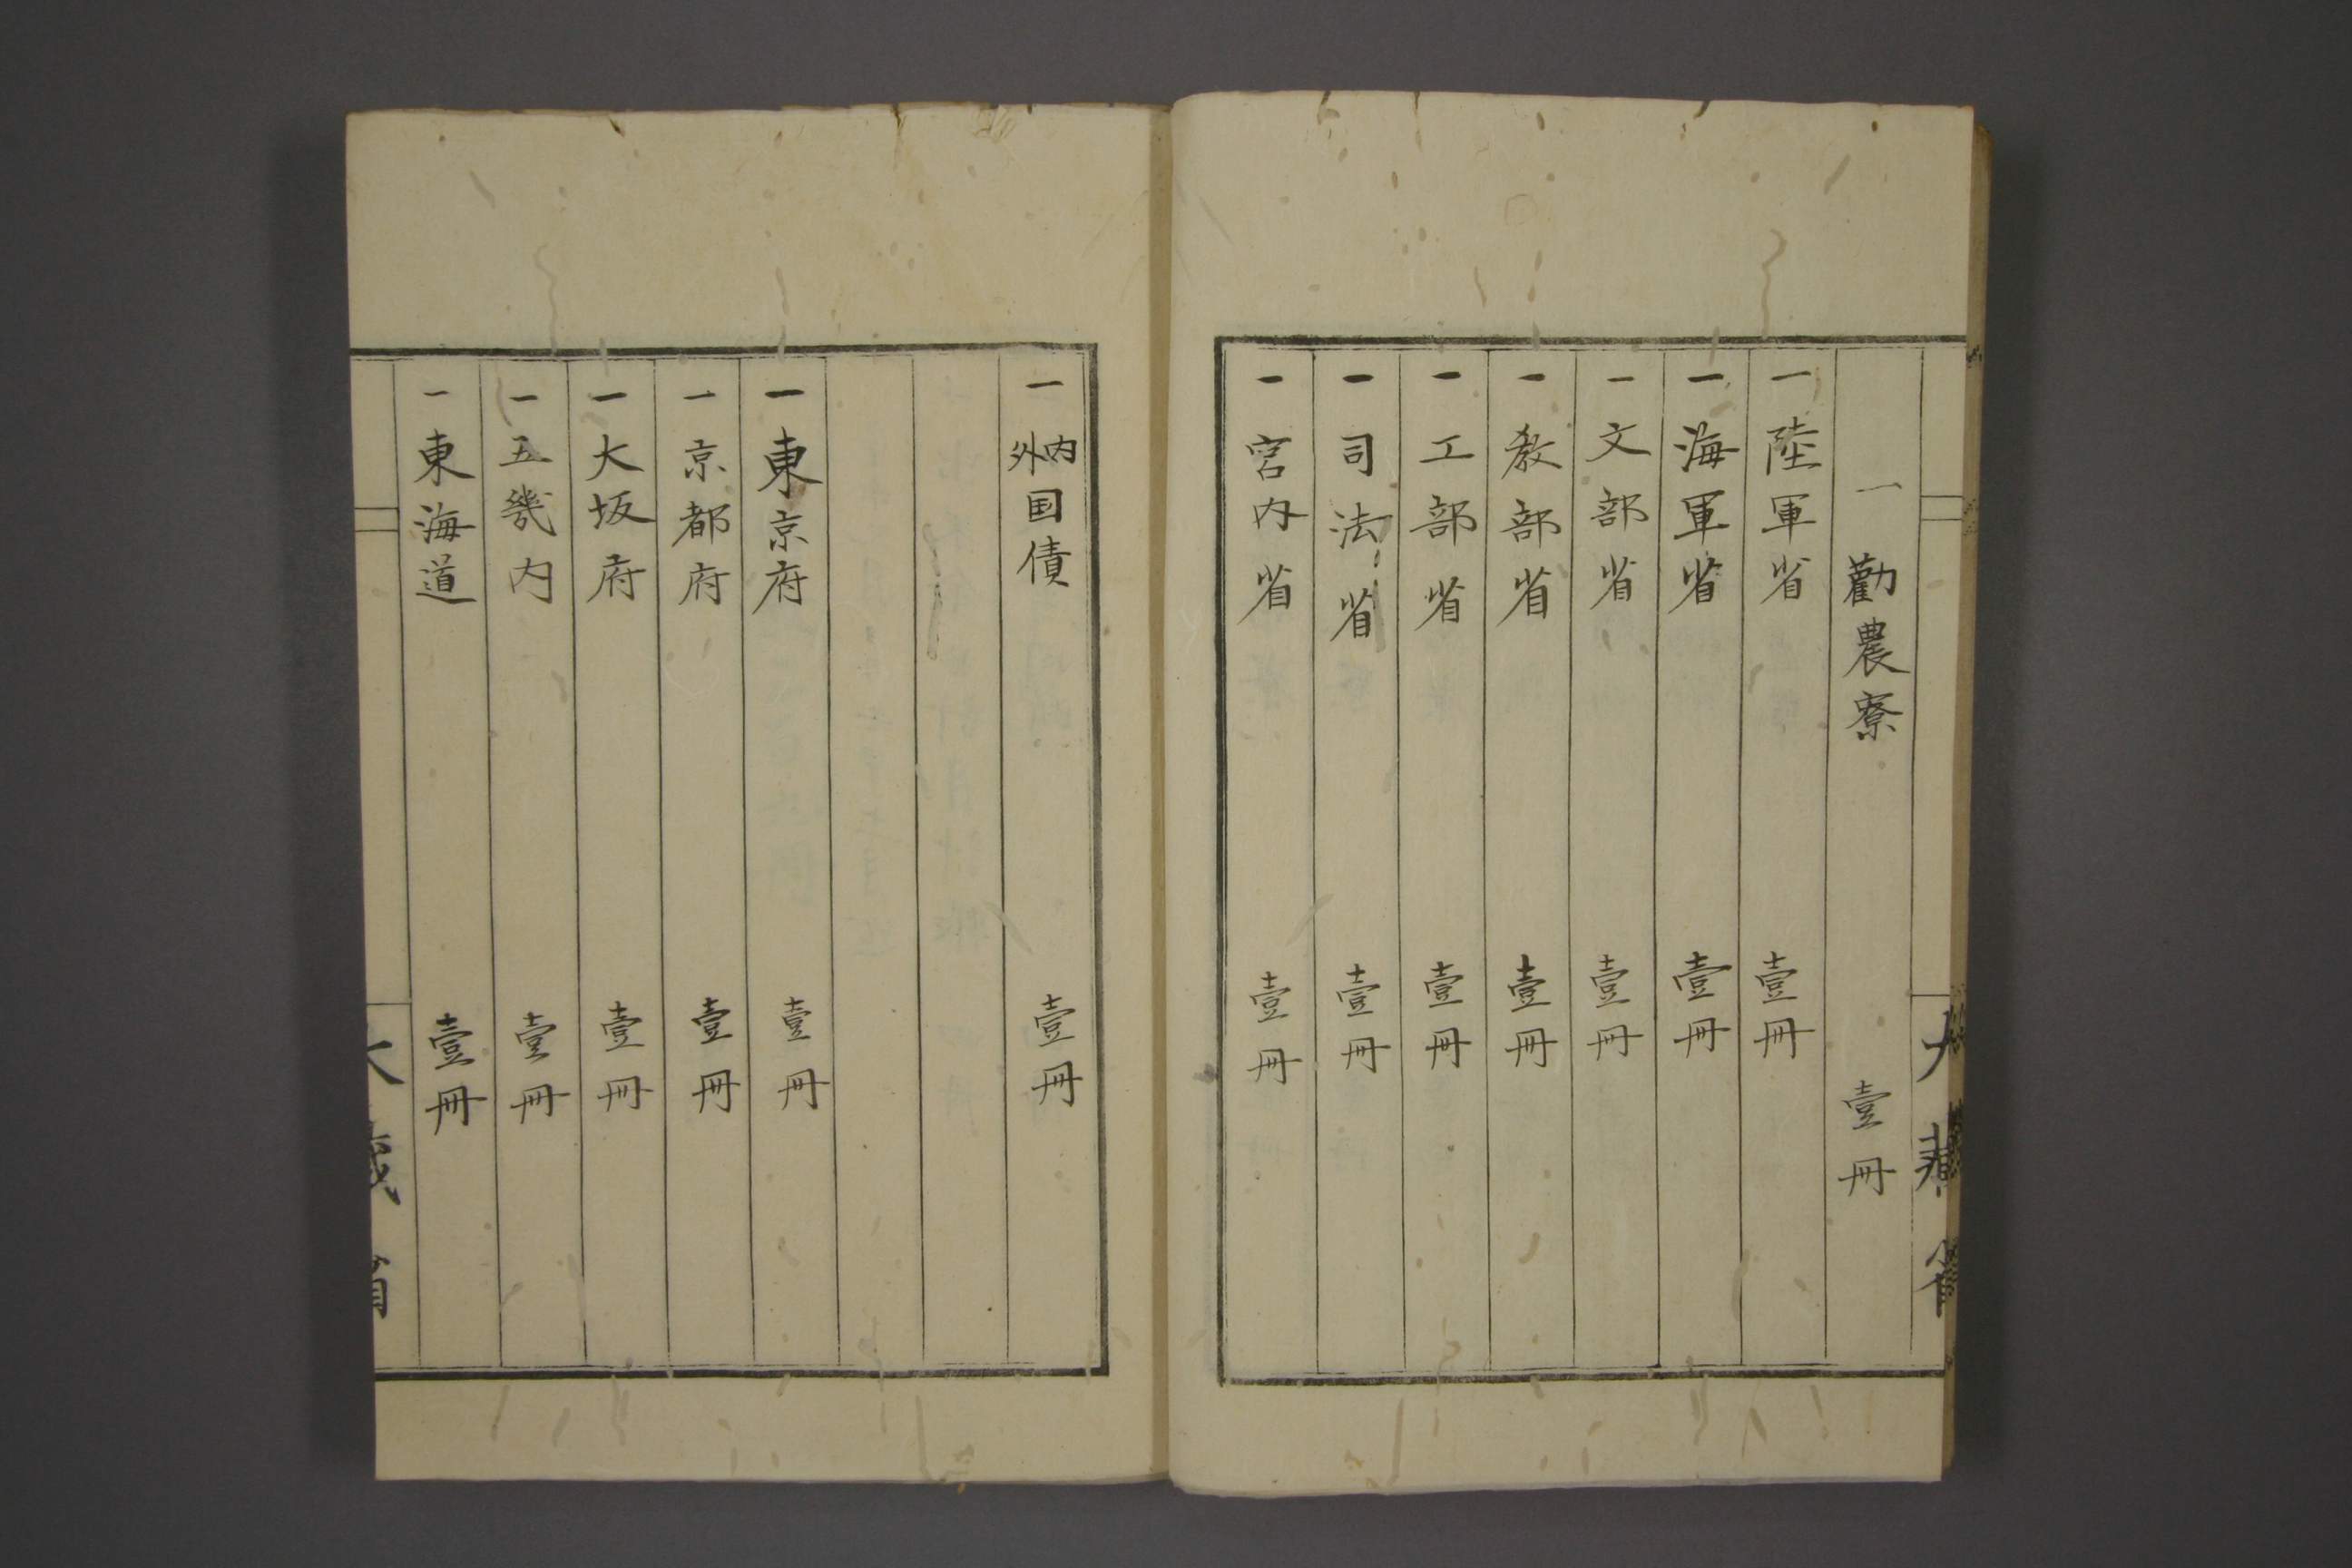 一 勸農寮 壹冊
一 陸軍省 壹冊
一 海軍省 壹冊
一 文部省 壹冊
一 教部省 壹冊
一 工部省 壹冊
一 司法省 壹冊
一 宮内省 壹冊
一 内外国債 壹冊
一 東京府 壹冊
一 京都府 壹冊
一 大坂府 壹冊
一 五幾内 壹冊
一 東海道 壹冊
大藏省